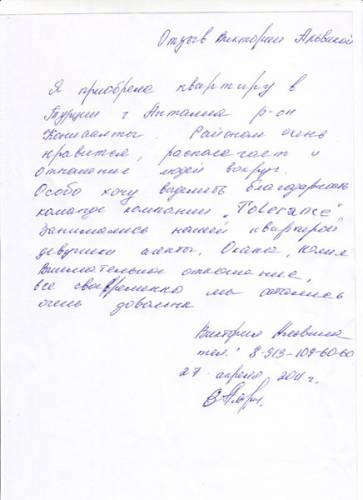 Отзыв Виктории Львиной
Я приобрела квартиру в
Турции г Анталия р-он
Коньаалты. Районом очень
нравится, располагает и
отношение людей вокруг.
Особо хочу выделить благодарность
команде компании „Tolerance”
Занимались нашей квартирой
девушки агенты, Оксана, Юлия
Внимательное отношение,
все своевременно мы остались
очень довольны
Виктория
тел. 8-913-109-60-60
27 апреля 2011 г.